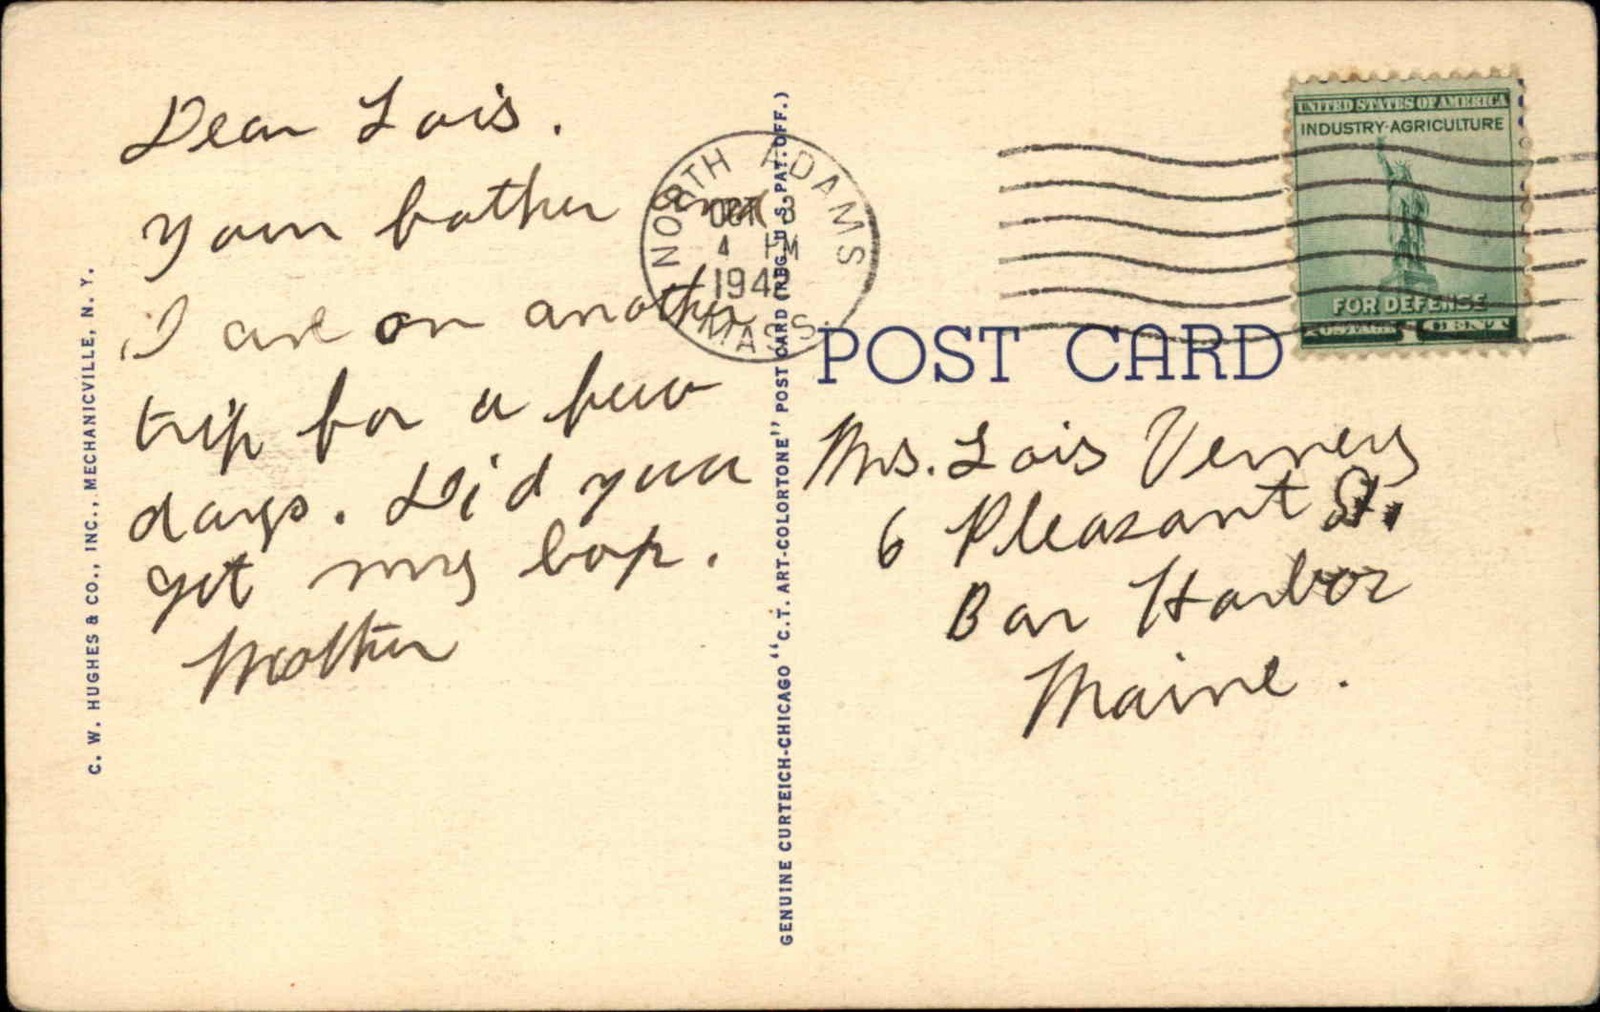 Dear Lois.
Your father and
I are on another
trip for a few
days. Did you
get my box.
Mother
C. W. HUGHES & CO., INC., MECHANICVILLE, N. Y.
GENUINE CURTEICH-CHICAGO "C.T. ART-COLORTONE" POST CARD (REG. U.S. PAT. OFF.)
NORTH ADAMS
OCT 3
4 PM
194
MASS.
UNITED STATES OF AMERICA
INDUSTRY-AGRICULTURE
FOR DEFENSE
POSTAGE 1 CENT
POST CARD
Mrs. Lois
6 Pleasant St.
Bar Harbor
Maine.